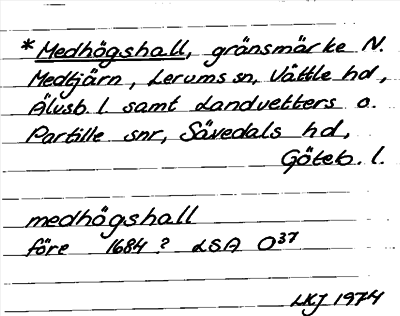 *Medhögshall, gränsmärke N.
Medtjärn, Lerums sn, Vättle hd,
Älvsb. l samt Landvetters o.
Partille snr, Sävedals hd,
Göteb. l.
medhögshall
före 1684? LSA O37
LKJ 1974